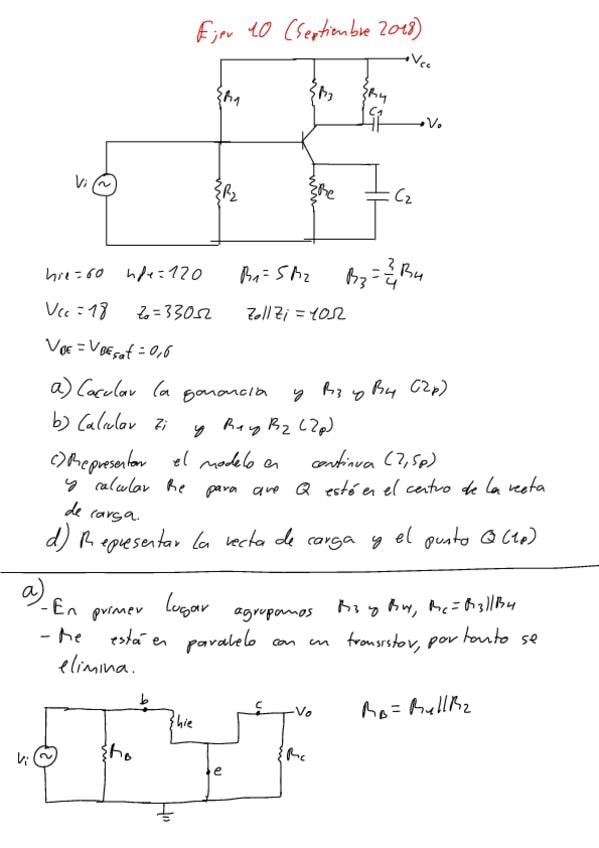 Ejer 10 (Septiembre 2018)
Vcc
R1
R3
R4
C1
Vo
Vi
R2
Re
C2
hie=60 hfe=120 R1=5R2 R3=3/4R4
Vcc=18 Zo=330Ω Zo//Zi=10Ω
VBE=VBEsat=0,6
a) Cacular la ganancia y R3 y R4 (2p)
b) Calcular Zi y R1 y R2 (2p)
c) Representar el modelo en continua (2,5p)
y calcular Re para que Q esté en el centro de la recta
de carga.
d) Representar la recta de carga y el punto Q (1p)
a)
- En primer lugar agrupamos R3 y R4, Rc=R3//R4
- Re está en paralelo con un transistor, por tanto se
elimina.
b
c
Vo
hie
RB=R1//R2
Vi
RB
e
Rc